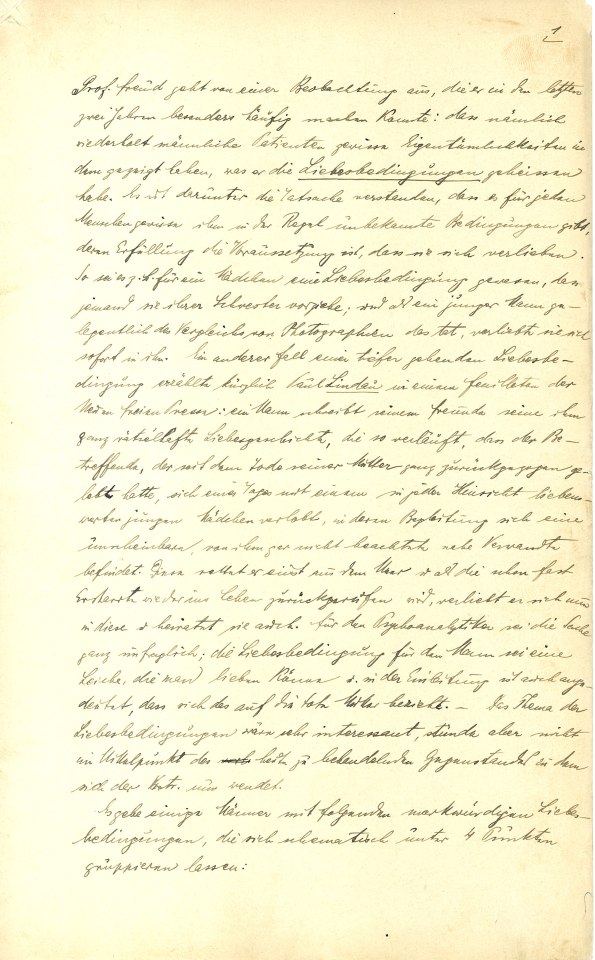 1
Prof. Freud geht von einer Beobachtung aus, die er in den letzten
zwei Jahren besonders häufig machen konnte: dass nämlich
wiederholt männliche Patienten gewisse Eigentümlichkeiten in
dem gezeigt haben, was er die Liebesbedingungen geheissen
habe. Es ist darunter die Tatsache verstanden, dass es für jeden
Menschen gewisse ihm in der Regel unbekannte Bedingungen gibt,
deren Erfüllung die Voraussetzung ist, dass sie sich verlieben.
So sei es z. b. für ein Mädchen eine Liebesbedingung gewesen, dass
jemand sie ihrer Schwester vorziehe; und als ein junger Mann ge-
legentlich des Vergleichs von Photographien das tat, verliebte sie sich
sofort in ihn. Ein anderer Fall einer tiefer gehenden Liebesbe-
dingung erzählte kürzlich Paul Lindau in einem Feuilleton der
Neuen freien Presse: ein Mann schreibt seinem Freunde seine ihm
ganz rätselhafte Liebesgeschichte, die so verläuft, dass der Be-
treffende, der seit dem Tode seiner Mutter ganz zurückgezogen ge-
lebt hatte, sich eines Tages mit einem in jeder Hinsicht liebens-
werten jungen Mädchen verlobt, in deren Begleitung sich eine
unscheinbare, von ihm gar nicht beachtete nahe Verwandte
befindet. Diese rettet er einst aus dem Meer u als die schon fast
Erstarrte wieder ins Leben zurückgerufen wird, verliebt er sich nun
in diese u heiratet sie auch. Für den Psychoanalytiker sei die Sache
ganz unfraglich; die Liebesbedingung für den Mann sei eine
Leiche, die man lieben könne u. in der Einleitung ist auch ange-
deutet, dass sich das auf die tote Mutter bezieht. – Das Thema der
Liebesbedingungen wäre sehr interessant, stünde aber nicht
im Mittelpunkt des heute zu behandelnden Gegenstandes zu dem
sich der Vortr. nun wendet.
Es gebe einige Männer mit folgenden merkwürdigen Liebes-
bedingungen, die sich schematisch unter 4 Punkten
gruppieren lassen: